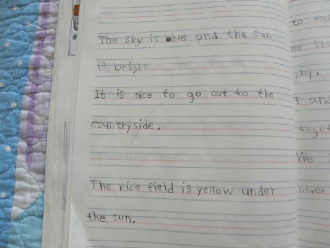 The sky is blue and the sun
is bright.
It is nice to go out to the
countryside.
The rice field is yellow under
the sun.
to
We
I and
toget
We